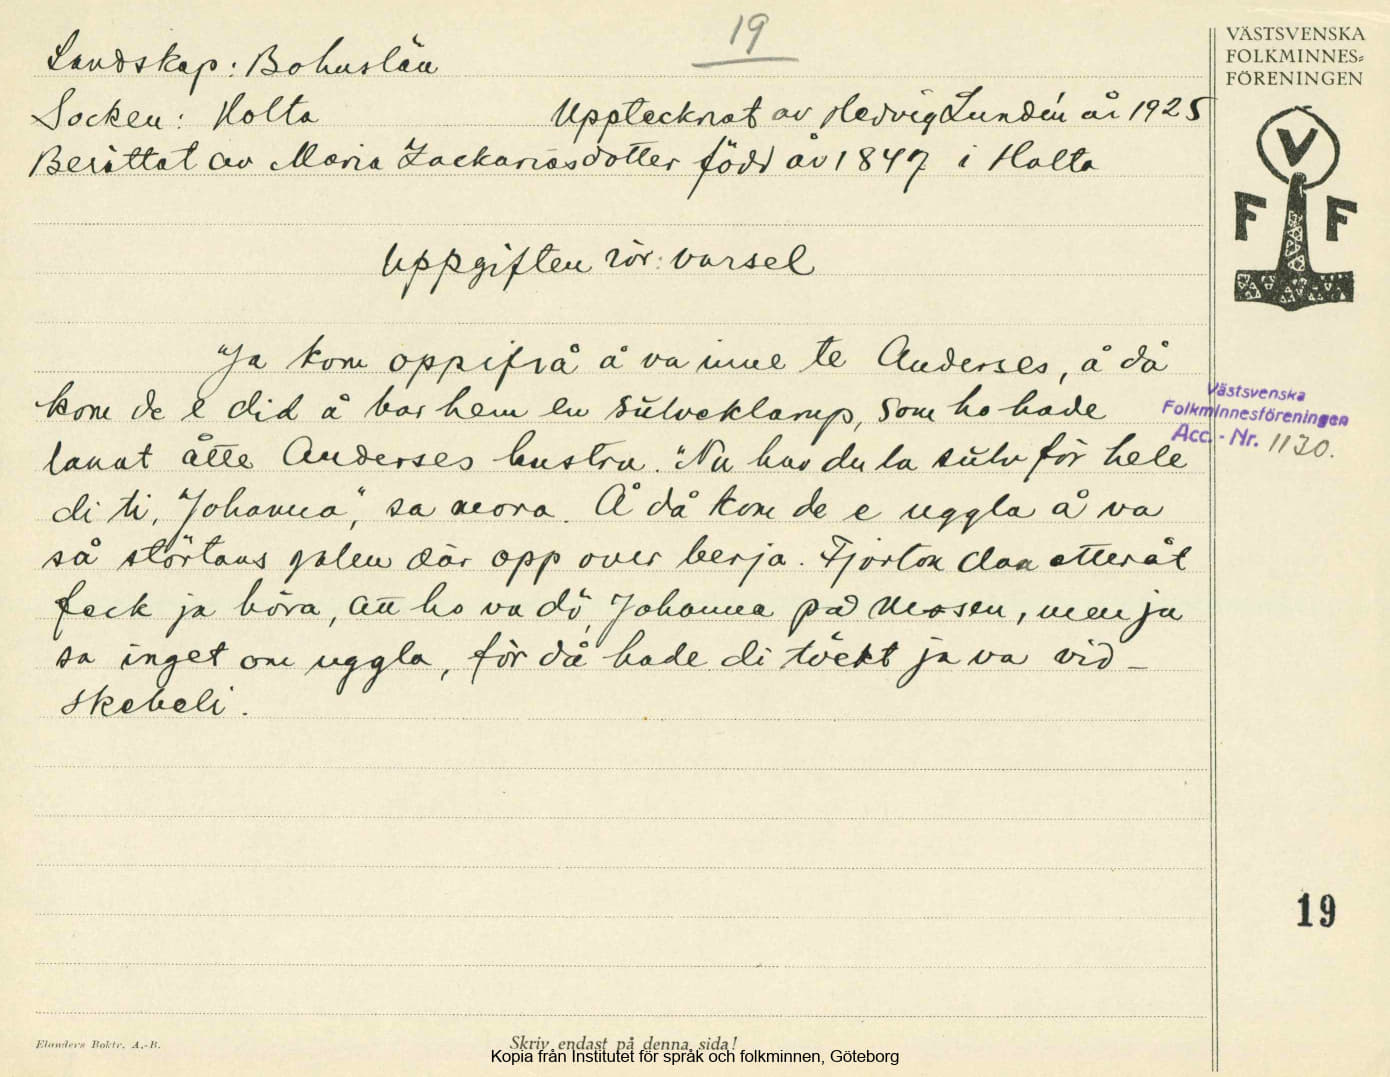 19
VÄSTSVENSKA
FOLKMINNES-
FÖRENINGEN
V
F F
Landskap: Bohuslän
Socken: Holta Upptecknat av Hedvig Lundén år 1925
Berättat av Maria Zackariasdotter född år 1847 i Holta
Uppgiften rör: varsel
"Ja kom oppifrå å va inne te Anderses, å då
kom de e did å bar hem en sülveklamp, som ho hade
lanat åtte Anderses hustru. "Nu har du la sülv för hele
di ti, Johanna", sa mora. Å då kom de e uggla å va
så störtans galen där opp over berja. Fjorton daa etteråt
feck ja höra, att ho va dö, Johanna på Mosen, men ja
sa inget om uggla, för då hade di töckt ja va vid-
skebeli.
Västsvenska
Folkminnesföreningen
Acc.-Nr. 1130.
19
Elanders Boktr. A.-B.
Skriv endast på denna sida!
Kopia från Institutet för språk och folkminnen, Göteborg